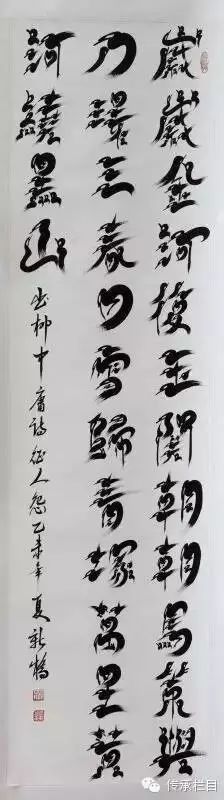 歲歲金河復玉關朝朝馬策與
刀環三春白雪歸青塚萬里黃
河繞黑山 书柳中庸诗征人怨乙未年夏新
传承栏目